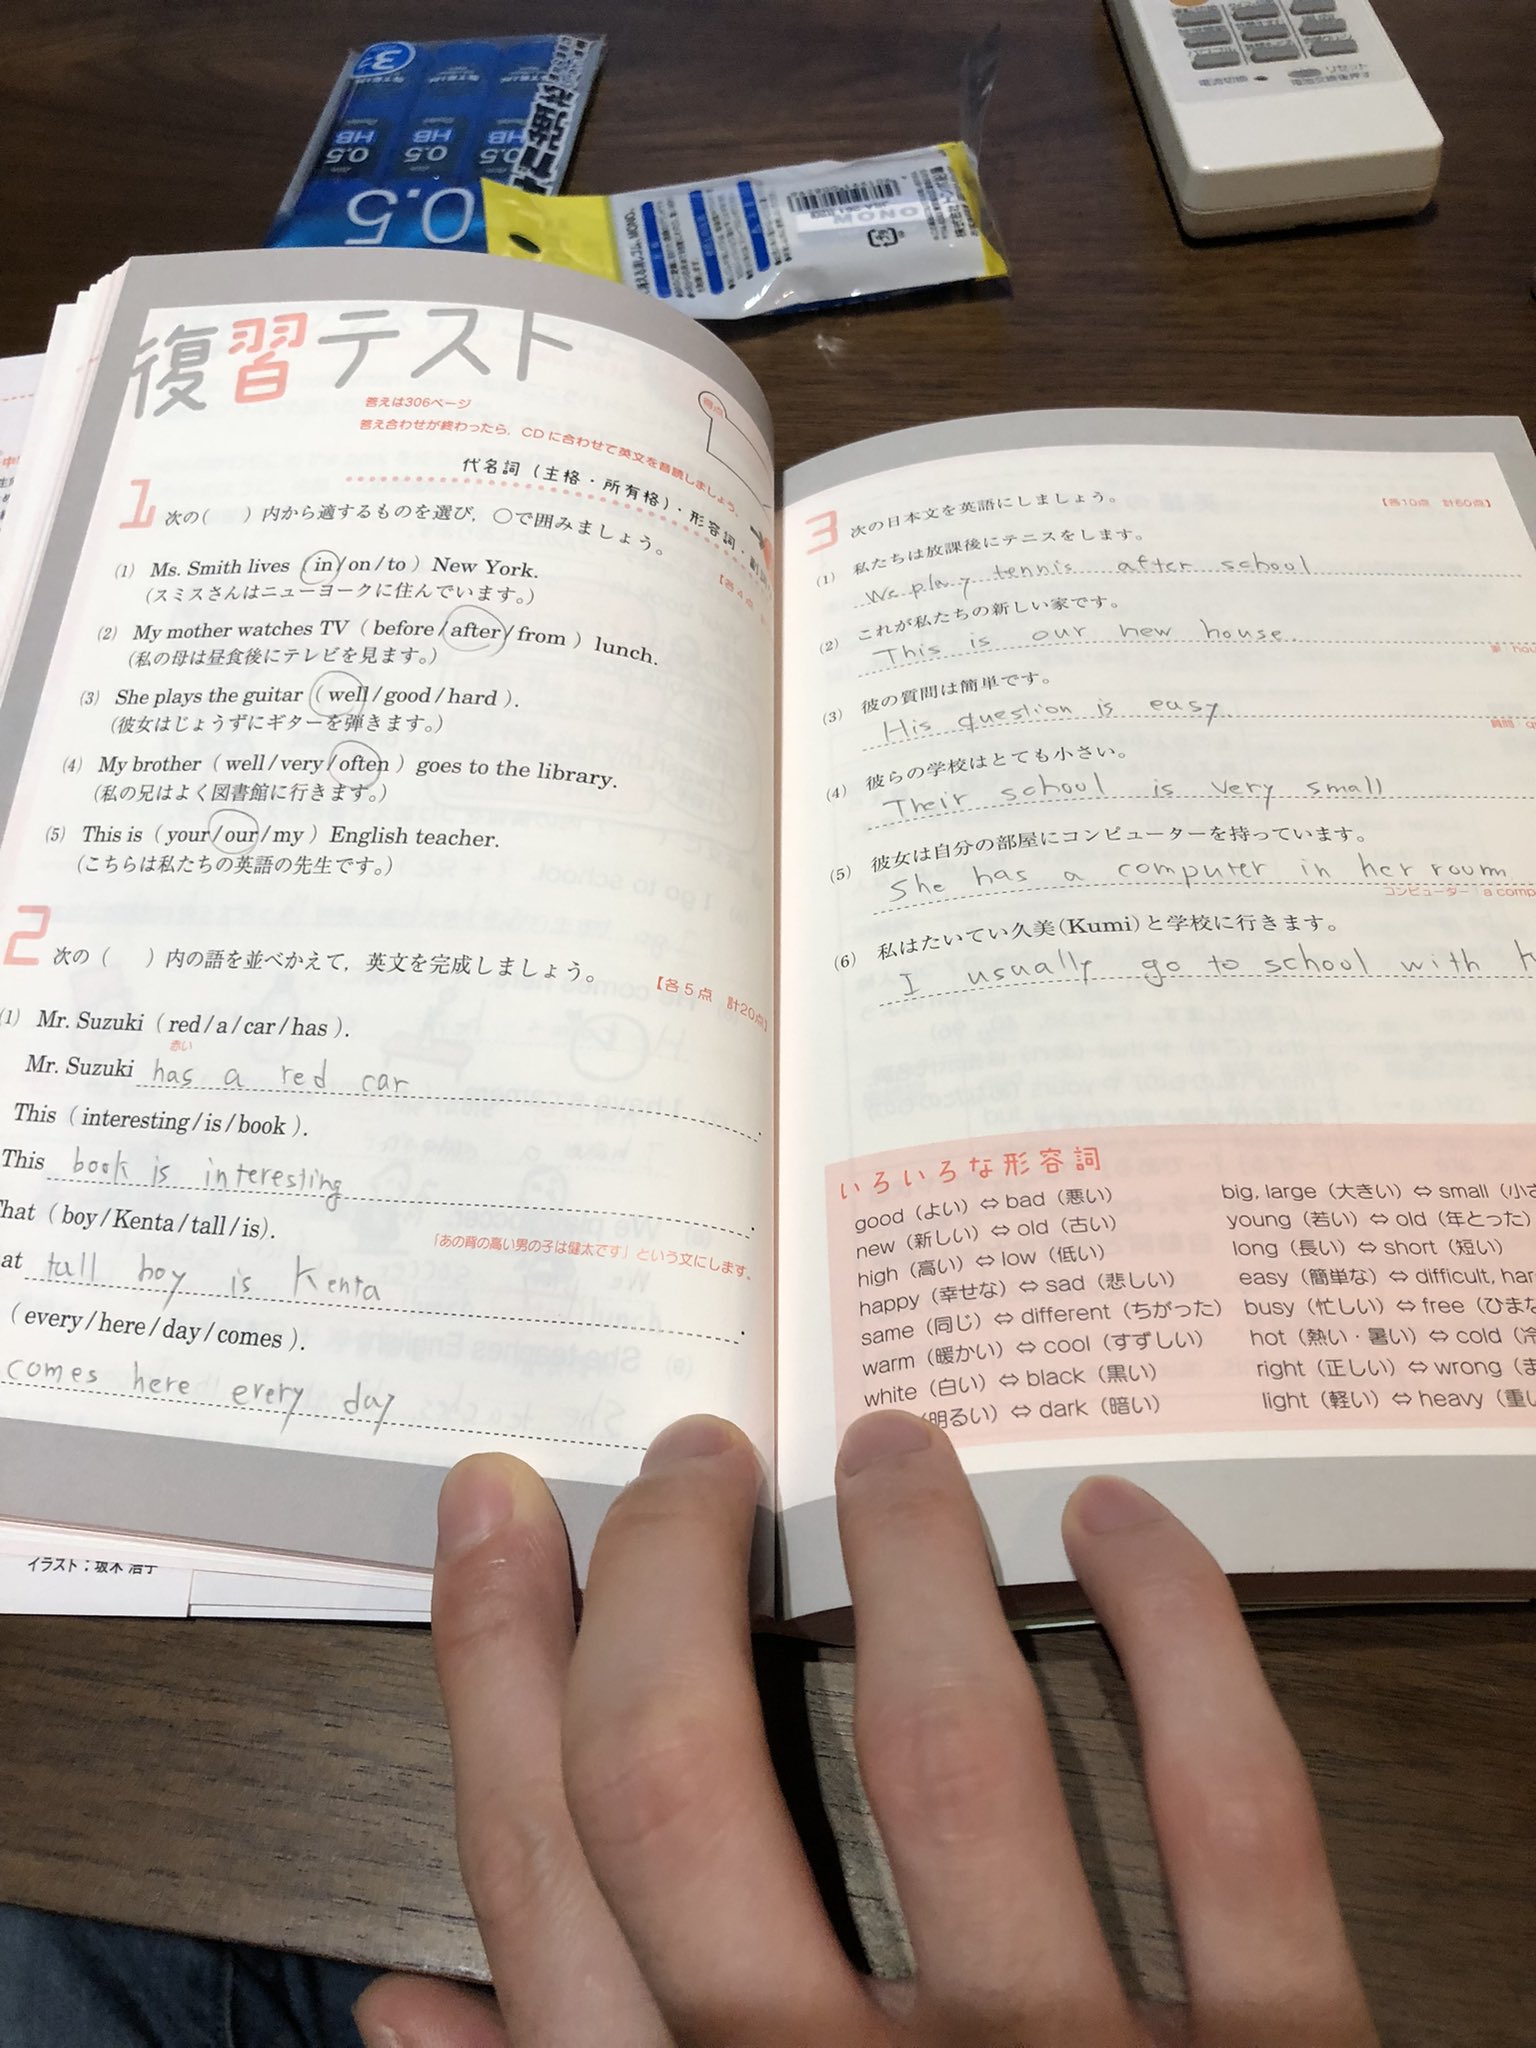 復習テスト
答えは306ページ
答え合わせが終わったら，CDに合わせて英文を音読しましょう。
得点
代名詞（主格・所有格）・形容詞・
1 次の（ ）内から適するものを選び，○で囲みましょう。
【各4点
(1) Ms. Smith lives ( in / on / to ) New York.
(スミスさんはニューヨークに住んでいます。)
(2) My mother watches TV ( before / after / from ) lunch.
(私の母は昼食後にテレビを見ます。)
(3) She plays the guitar ( well / good / hard ).
(彼女はじょうずにギターを弾きます。)
(4) My brother ( well / very / often ) goes to the library.
(私の兄はよく図書館に行きます。)
(5) This is ( your / our / my ) English teacher.
(こちらは私たちの英語の先生です。)
2 次の（ ）内の語を並べかえて，英文を完成しましょう。
【各5点 計20点】
(1) Mr. Suzuki ( red / a / car / has ).
赤い
Mr. Suzuki has a red car .
This ( interesting / is / book ).
This book is interesting .
hat ( boy / Kenta / tall / is).
「あの背の高い男の子は健太です」という文にします。
at tall boy is Kenta .
( every / here / day / comes ).
comes here every day
イラスト：坂木 浩子
3 次の日本文を英語にしましょう。
【各10点 計60点】
(1) 私たちは放課後にテニスをします。
We play tennis after school
(2) これが私たちの新しい家です。
This is our new house.
家：hou
(3) 彼の質問は簡単です。
His question is easy.
質問：q
(4) 彼らの学校はとても小さい。
Their school is very small
(5) 彼女は自分の部屋にコンピューターを持っています。
She has a computer in her room
コンピューター：a comp
(6) 私はたいてい久美(Kumi)と学校に行きます。
I usually go to school with
いろいろな形容詞
good（よい）⇔ bad（悪い）
new（新しい）⇔ old（古い）
high（高い）⇔ low（低い）
happy（幸せな）⇔ sad（悲しい）
same（同じ）⇔ different（ちがった）
warm（暖かい）⇔ cool（すずしい）
white（白い）⇔ black（黒い）
（明るい）⇔ dark（暗い）
big, large（大きい）⇔ small（小さ
young（若い）⇔ old（年とった）
long（長い）⇔ short（短い）
easy（簡単な）⇔ difficult, har
busy（忙しい）⇔ free（ひまな
hot（熱い・暑い）⇔ cold（冷
right（正しい）⇔ wrong（ま
light（軽い）⇔ heavy（重い
3
STEIN
HB HB HB
0.5 0.5 0.5
0.5
MONO
リセット